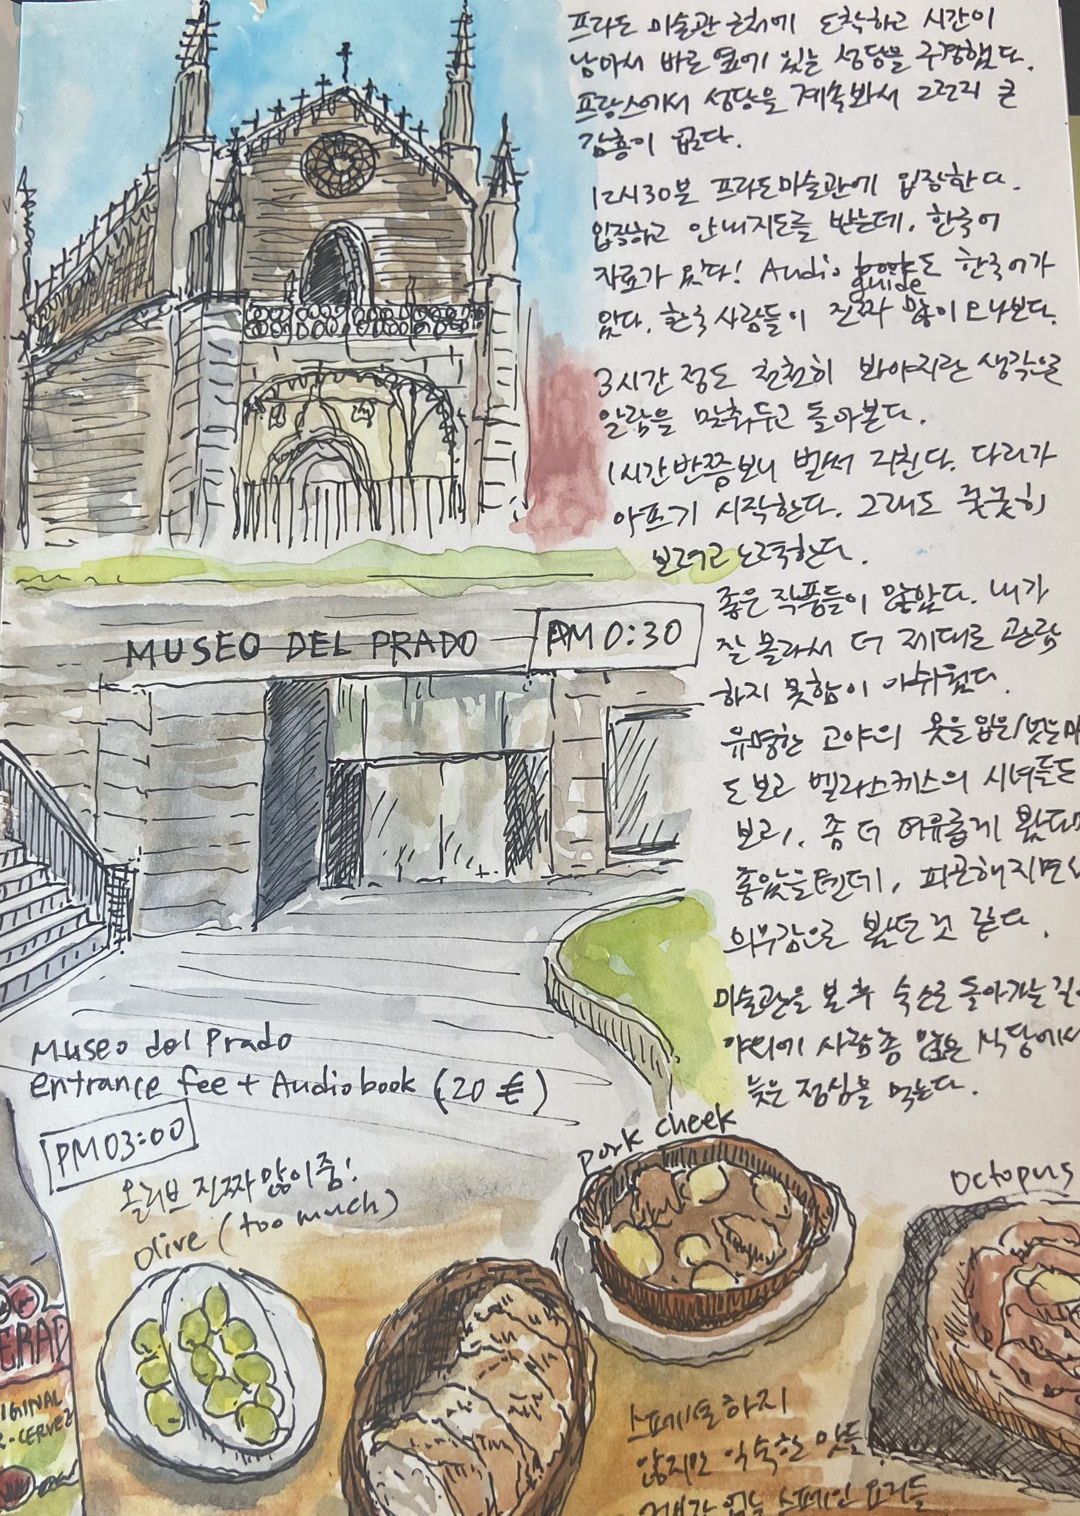 프라도 미술관 근처에 도착하고 시간이
남아서 바로 옆에 있는 성당을 구경했다.
프랑스에서 성당을 계속봐서 그런지 큰
감흥이 없다.
12시30분 프라도미술관에 입장한다.
입장하고 안내지도를 받는데, 한국어
자료가 있다! Audio guide도 한국어가
있다. 한국 사람들이 진짜 많이 오나보다.
3시간 정도 천천히 봐야지란 생각으로
알람을 맞춰두고 돌아본다.
1시간반쯤보니 벌써 지친다. 다리가
아프기 시작한다. 그래도 꿋꿋히
보려고 노력한다.
좋은 작품들이 많았다. 내가
잘 몰라서 더 제대로 관람
하지 못함이 아쉬웠다.
유명한 고야의 옷을입은/벗는마
도 보고 벨라스케스의 시녀들도
보고, 좀 더 여유롭게 봤다면
좋았을텐데, 피곤해지면서
의무감으로 봤던 것 같다.
미술관을 본 후 숙소로 돌아가는 길
야외에 사람 좀 있는 식당에서
늦은 점심을 먹는다.
MUSEO DEL PRADO
PM 0:30
Museo del Prado
entrance fee + Audiobook (20 €)
PM 03:00
올리브 진짜 많이줌!
Olive (too much)
pork cheek
Octopus
ERAD
IGINAL
CERVEZ
스페셜하지
않지만 익숙한 맛들
없는 스페인 요리들